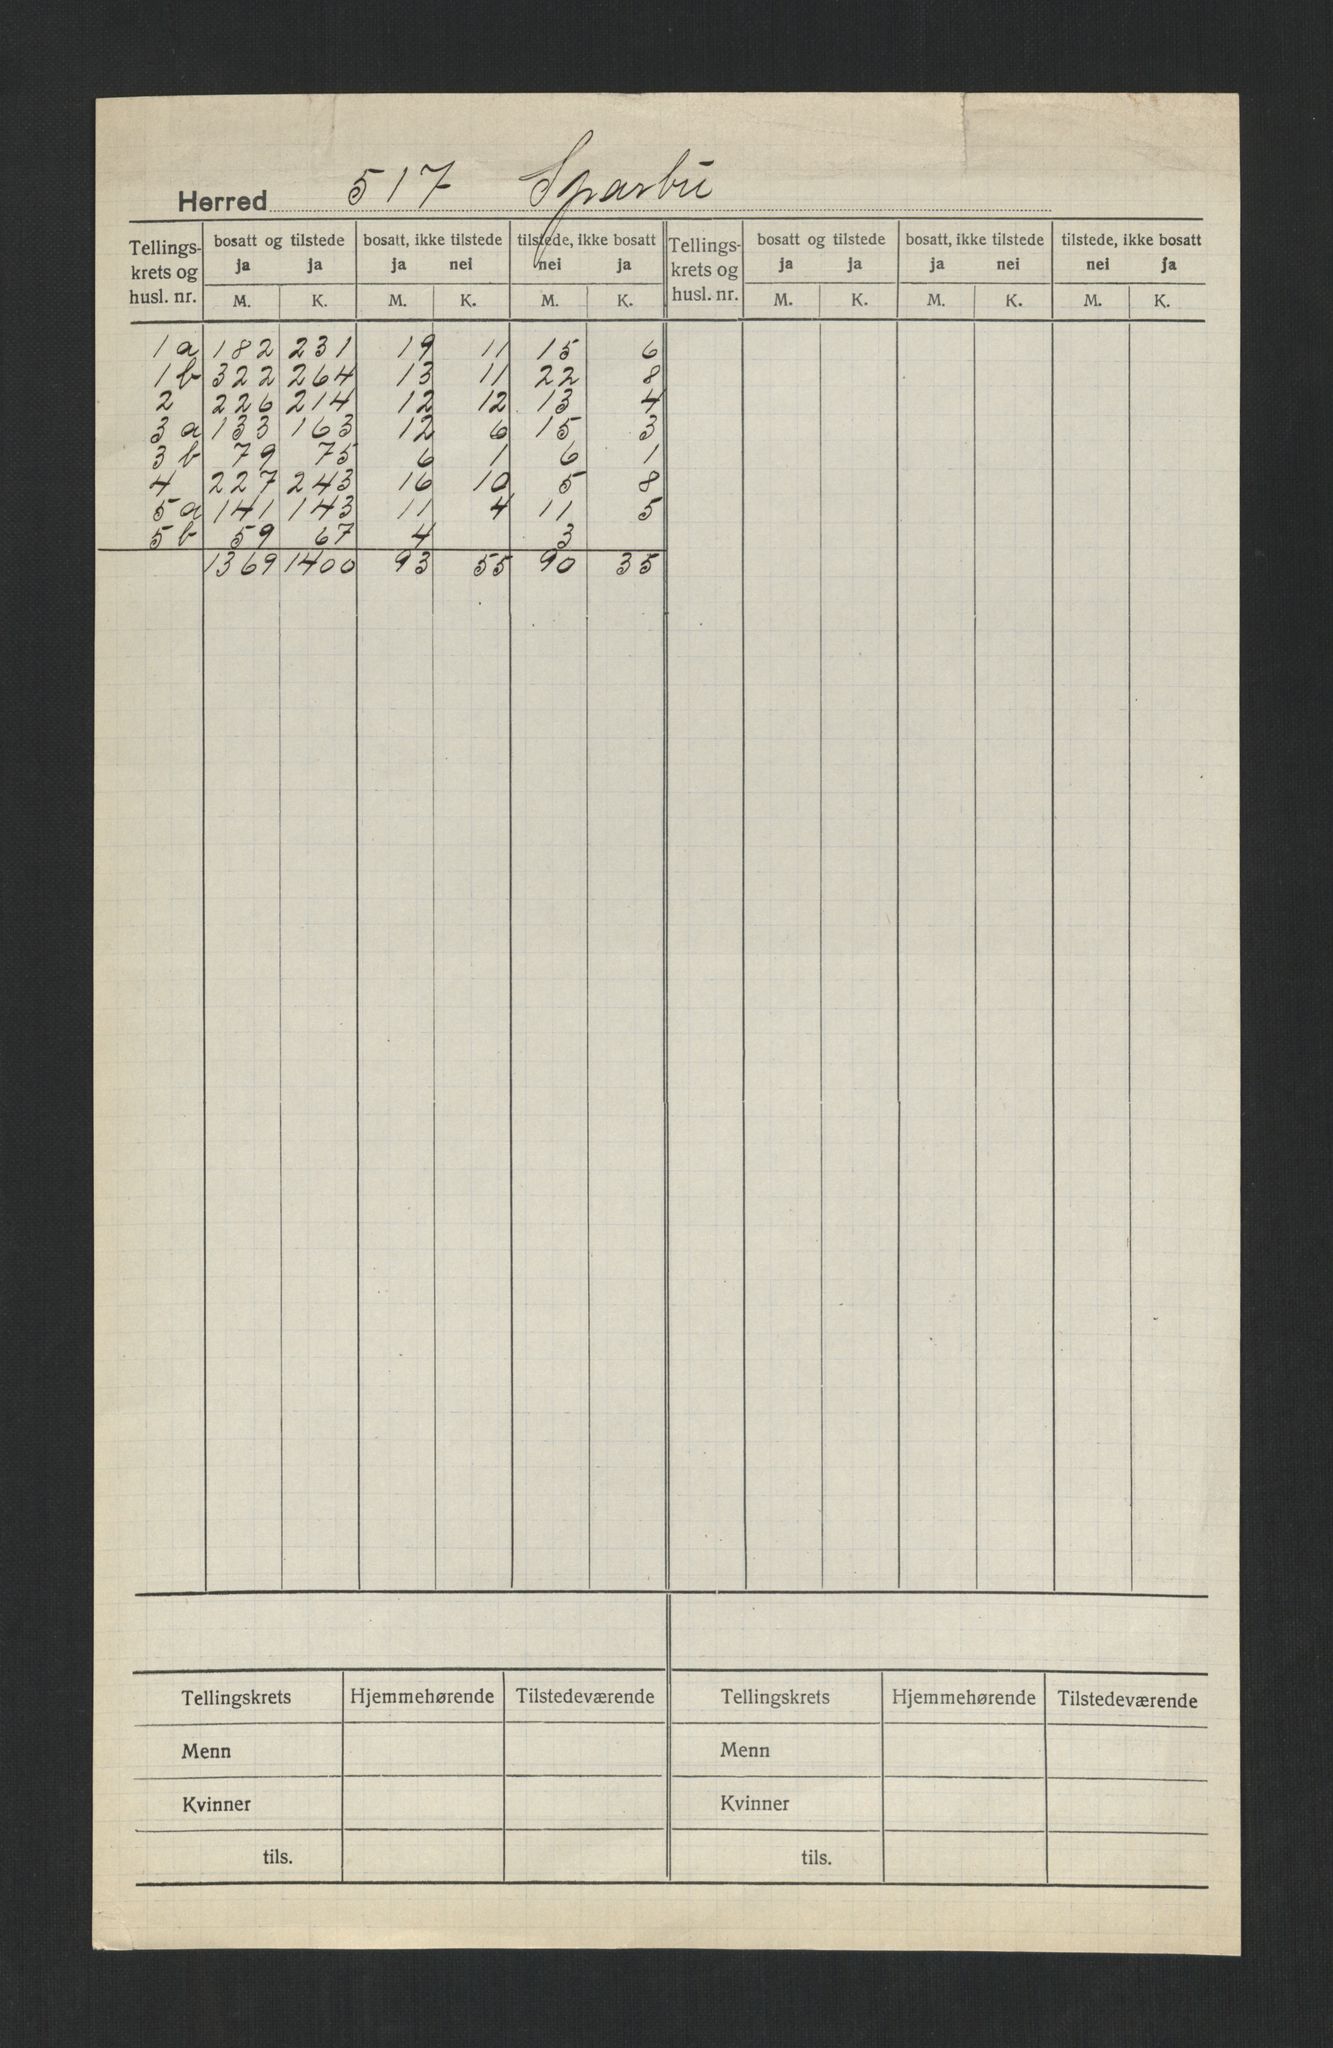 Herred 517 Sparbu
Tellings- krets og husl. nr. | bosatt og tilstede | bosatt, ikke tilstede | tilstede, ikke bosatt | Tellings- krets og husl. nr. | bosatt og tilstede | bosatt, ikke tilstede | tilstede, ikke bosatt
ja ja ja nei nei ja ja ja ja nei nei ja
M. K. M. K. M. K. M. K. M. K. M. K.
1 a 182 231 19 11 15 6
1 b 322 264 13 11 22 8
2 226 214 12 12 13 4
3 a 133 163 12 6 15 3
3 b 79 75 6 1 6 1
4 227 243 16 10 5 8
5 a 141 143 11 4 11 5
5 b 59 67 4 3
1369 1400 93 55 90 35
Tellingskrets Hjemmehørende Tilstedeværende Tellingskrets Hjemmehørende Tilstedeværende
Menn Menn
Kvinner Kvinner
tils. tils.